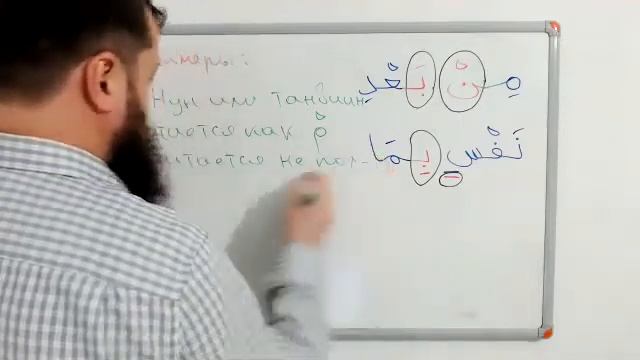 имеры:
Нун или танвин
тается как مْ
итается не пол-
مِنْ بَعْدِ
نَفْسٍ بِمَا